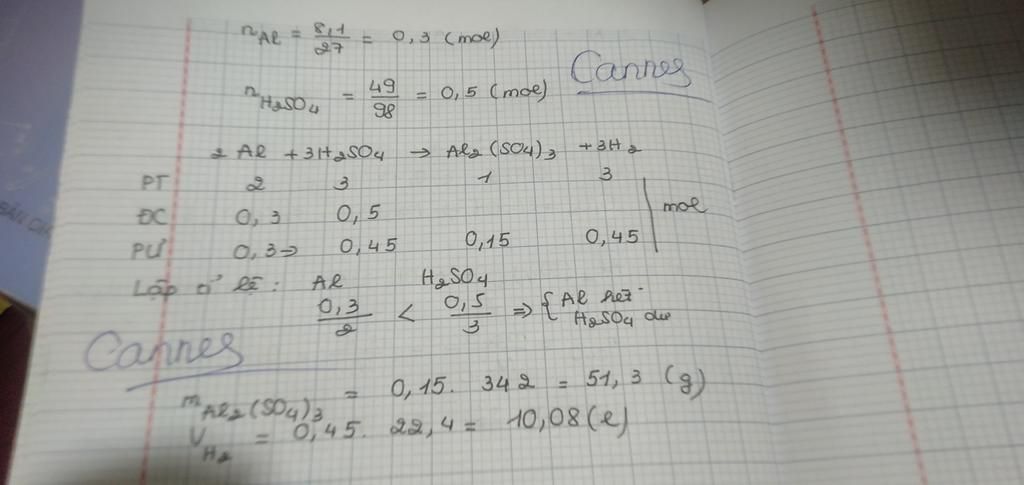 nAl = 8,1/27 = 0,3 (mol)
Cannes
nH₂SO₄ = 49/98 = 0,5 (mol)
2 Al + 3H₂SO₄ → Al₂(SO₄)₃ + 3H₂
PT 2 3 1 3
ĐC 0,3 0,5 mol
PƯ 0,3 → 0,45 0,15 0,45
Lập tỉ lệ: Al H₂SO₄
0,3/2 < 0,5/3 ⇒ { Al hết
H₂SO₄ dư
Cannes
mAl₂(SO₄)₃ = 0,15. 342 = 51,3 (g)
VH₂ = 0,45. 22,4 = 10,08 (l)